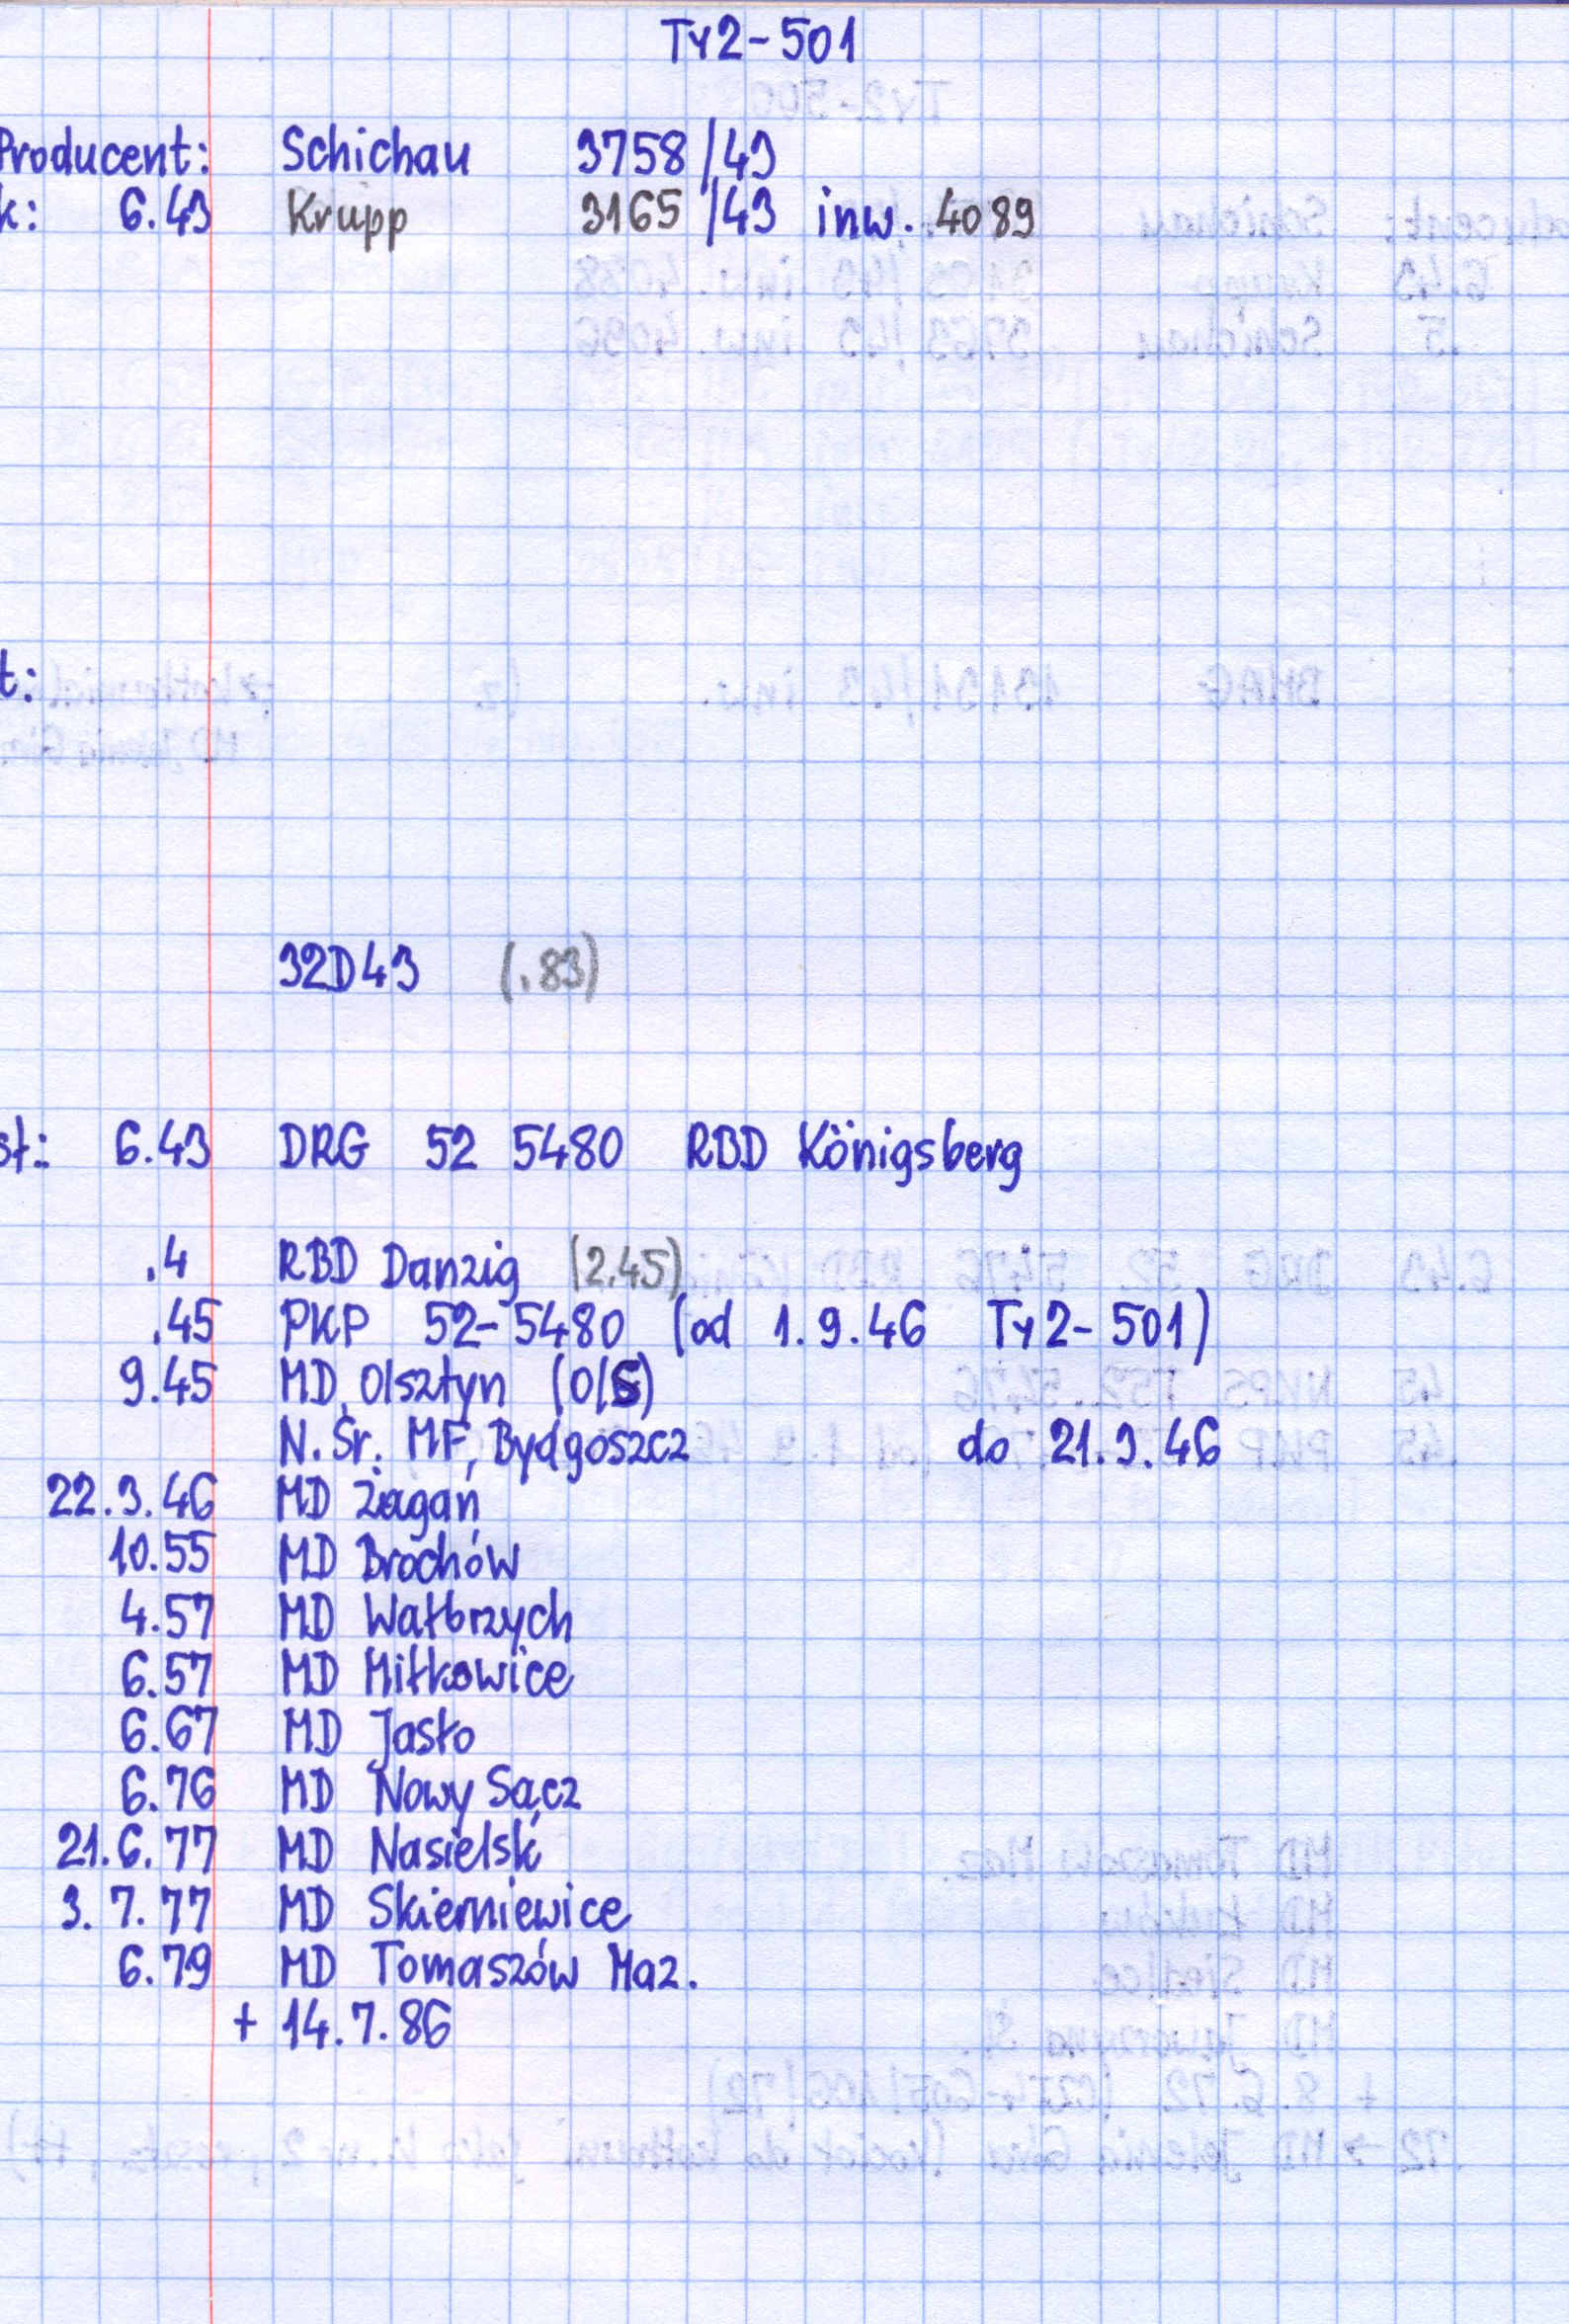 Ty2-501
Producent: Schichau 3758/43
k: 6.43 Krupp 3165/43 inw. 4089
t:
32D43 (.83)
st: 6.43 DRG 52 5480 RBD Königsberg
.4 RBD Danzig (2.45)
.45 PKP 52-5480 (od 1.9.46 Ty2-501)
9.45 MD Olsztyn (O/S)
N.Śr. MF, Bydgoszcz do 21.3.46
22.3.46 MD Żagań
10.55 MD Brochów
4.57 MD Wałbrzych
6.57 MD Miłkowice
6.67 MD Jasło
6.76 MD Nowy Sącz
21.6.77 MD Nasielsk
3.7.77 MD Skierniewice
6.79 MD Tomaszów Maz.
+ 14.7.86